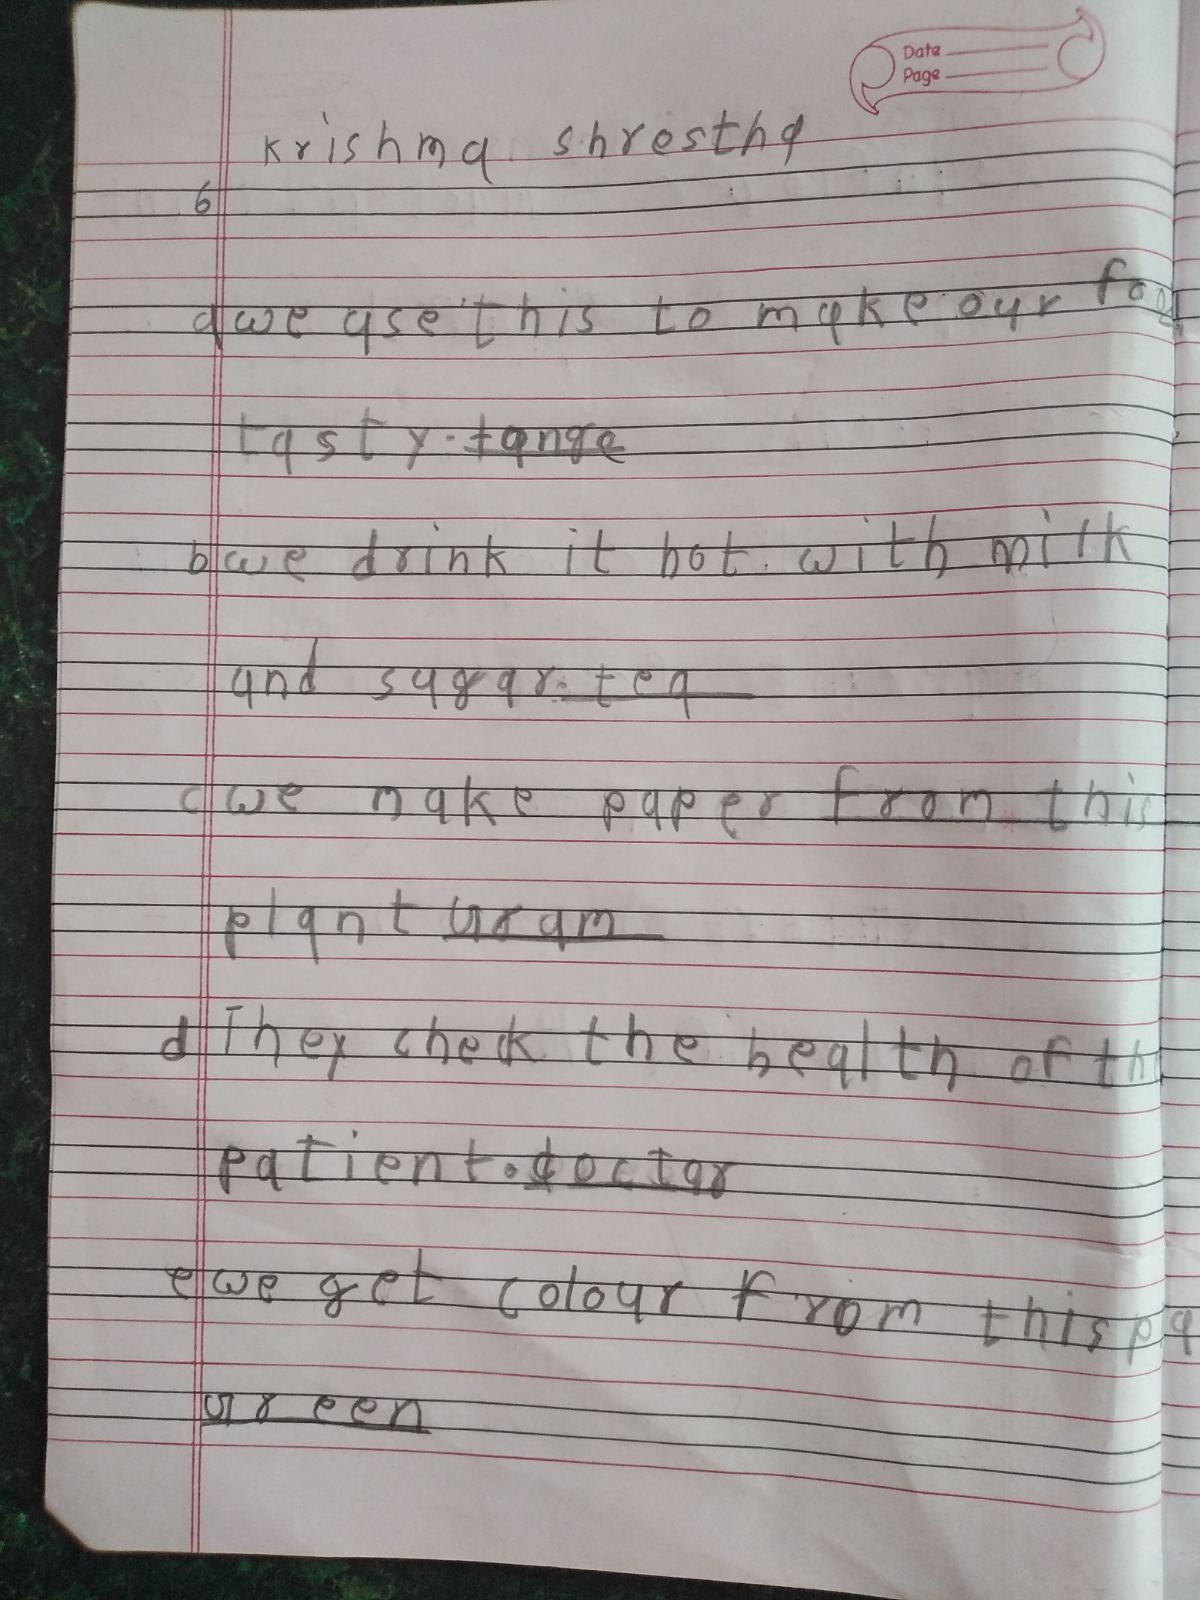 Date
Page
krishma shrestha
6
a we use this to make our foo
tasty. tange
b we drink it hot with milk
and sugar. tea
c we make paper from this
plant gram
d They check the health of th
patient. doctar
e we get colour from this pa
green